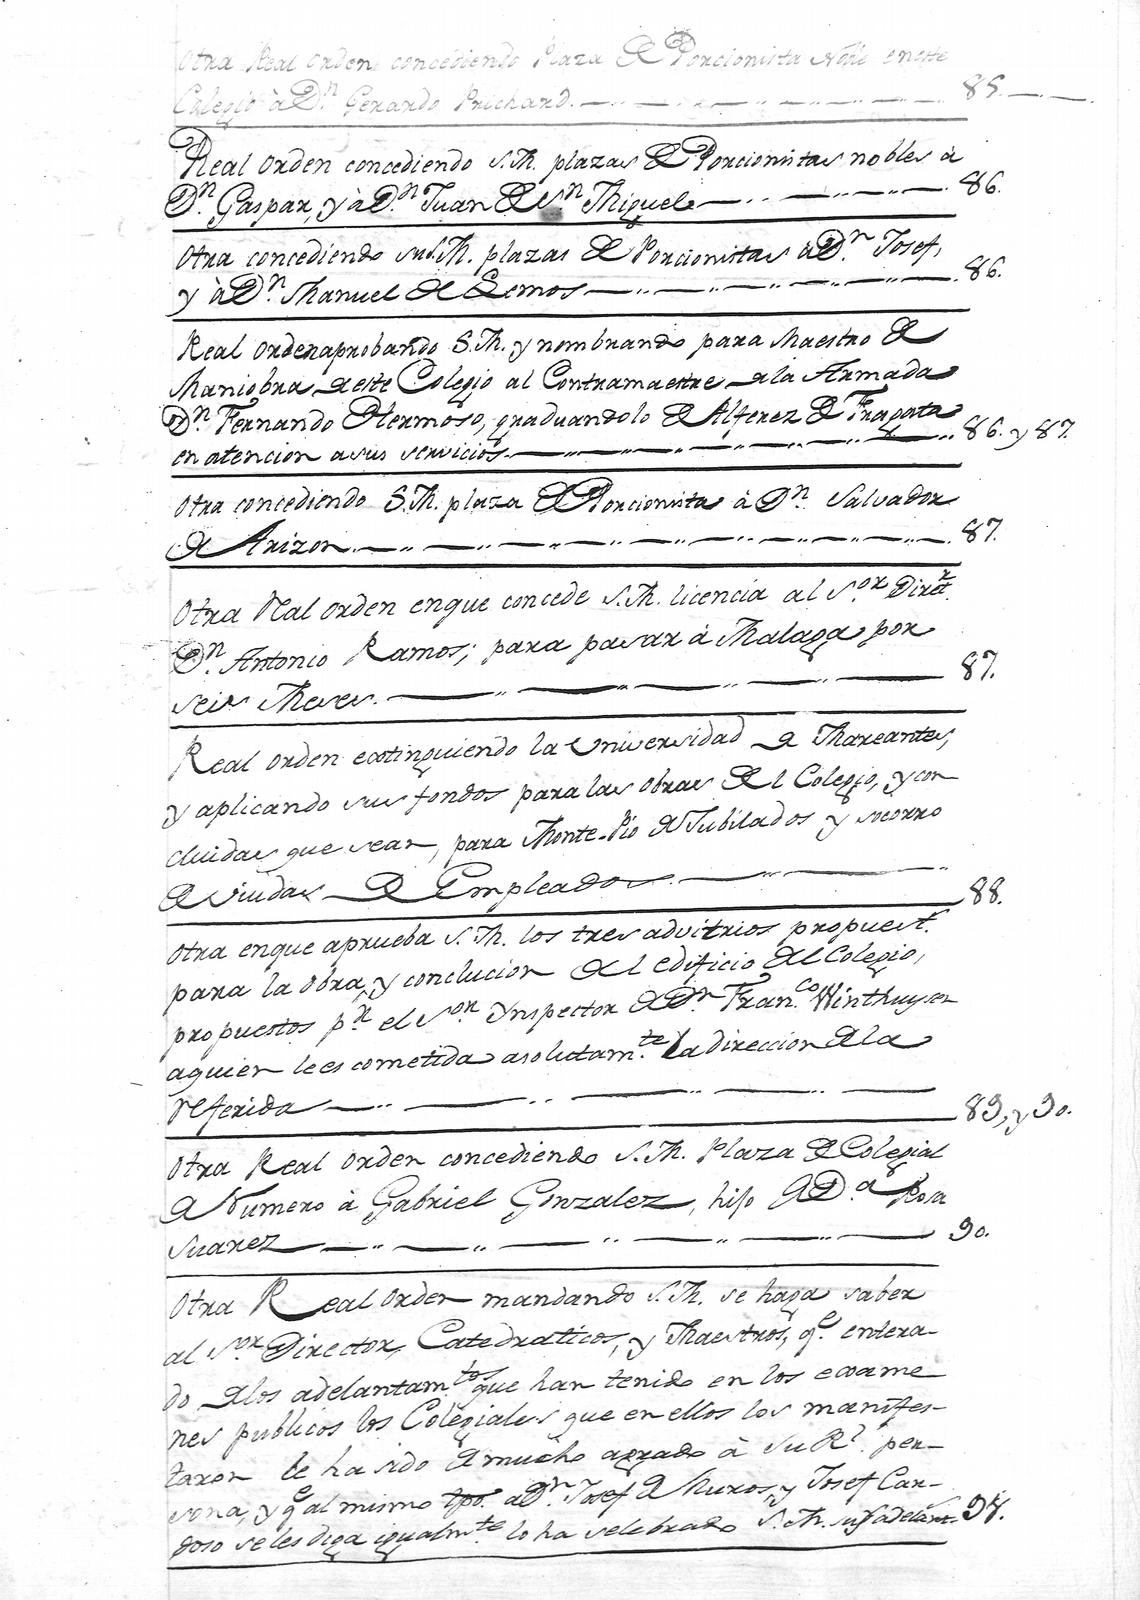 Otra Real Orden concediendo Plaza de Porcionista Noble en este
Colegio à Dn. Gerardo Prichard. 85.
Real Orden concediendo S.M. plazas de Porcionistas nobles à
Dn. Gaspar, y à Dn. Juan de Sn. Miguel 86.
Otra concediendo su S.M. plazas de Porcionistas à Dn. Josef,
y à Dn. Manuel de Lemos 86.
Real Orden aprobando S.M. y nombrando para Maestro de
Maniobra de este Colegio al Contramaestre de la Armada
Dn. Fernando Hermoso, graduandolo de Alferez de Fragata
en atencion a sus servicios. 86. y 87.
Otra concediendo S.M. plaza de Porcionista à Dn. Salvador
de Arizon. 87.
Otra Real orden en que concede S.M. licencia al Sor. Directr.
Dn. Antonio Ramos; para pasar à Malaga por
seis Meses. 87.
Real orden extinguiendo la Universidad de Mareantes,
y aplicando sus fondos para las obras del Colegio, y con
cluidas que sean, para Monte-Pio de Jubilados y socorro
de viudas de Empleados. 88.
Otra en que aprueba S.M. los tres advitrios propuest.
para la obra, y conclucion del edificio del Colegio,
propuestos pr. el Sor. Ynspector de Dn. Franco. Winthuysen
a quien le es cometida asolutamte. la direccion de la
referida 89, y 90.
Otra Real Orden concediendo S.M. Plaza de Colegial
de Numero à Gabriel Gonzalez, hijo de Da. Rosa
Suarez 90.
Otra Real Orden mandando S.M. se haga saber
al Sor. Director, Catedraticos, y Maestros, qe. entera-
do de los adelantamtos. que han tenido en los exame
nes publicos los Colegiales que en ellos los manifes-
taron le ha sido de mucho agrado à su Rl. per-
sona, y qe. al mismo tpo. a Dn. Josef de Muros, y Josef Car-
doso se les diga igualmte. lo ha selebrado S.M. sus adelant.